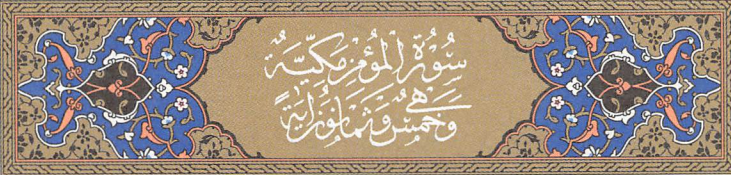 سُورَةُ الْمُؤْمِنِ مَكِّيَّةٌ
وَهِيَ خَمْسٌ وَثَمَانُونَ اٰيَةً